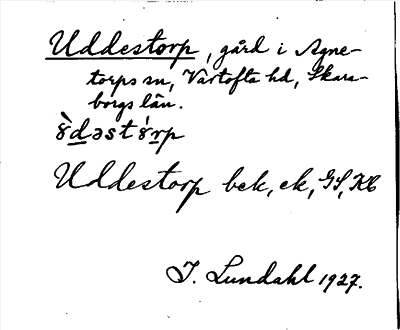 Uddestorp, gård i Agne-
torps sn, Vartofta hd, Skara-
borgs län.
Uddestorp bek, ek, GS, KB
I. Lundahl 1927.